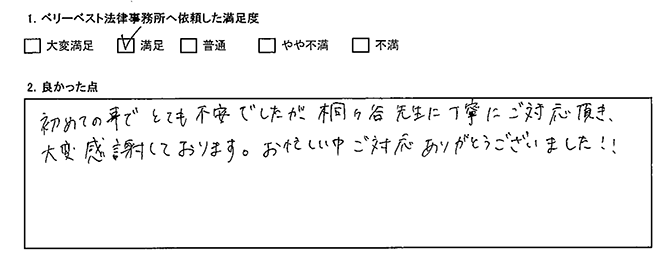 1. ベリーベスト法律事務所へ依頼した満足度
□ 大変満足 ☑ 満足 □ 普通 □ やや不満 □ 不満
2. 良かった点
初めての事でとても不安でしたが、桐ヶ谷先生に丁寧にご対応頂き、
大変感謝しております。お忙しい中ご対応ありがとうございました!!